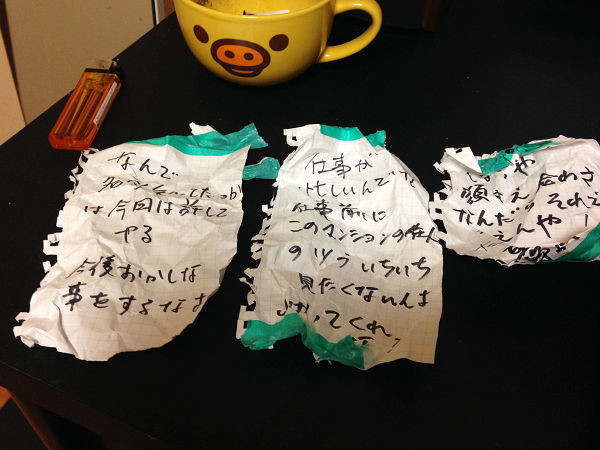 なんで
は今回は許して
ヤる
今後おかしな
事をするなよ
仕事が
忙しいんでな
仕事前に
このマンションの住人
のツラ いちいち
見たくないんよ
わかってくれ
顔さえ 合わさ
なんだ。それで
ええんや!